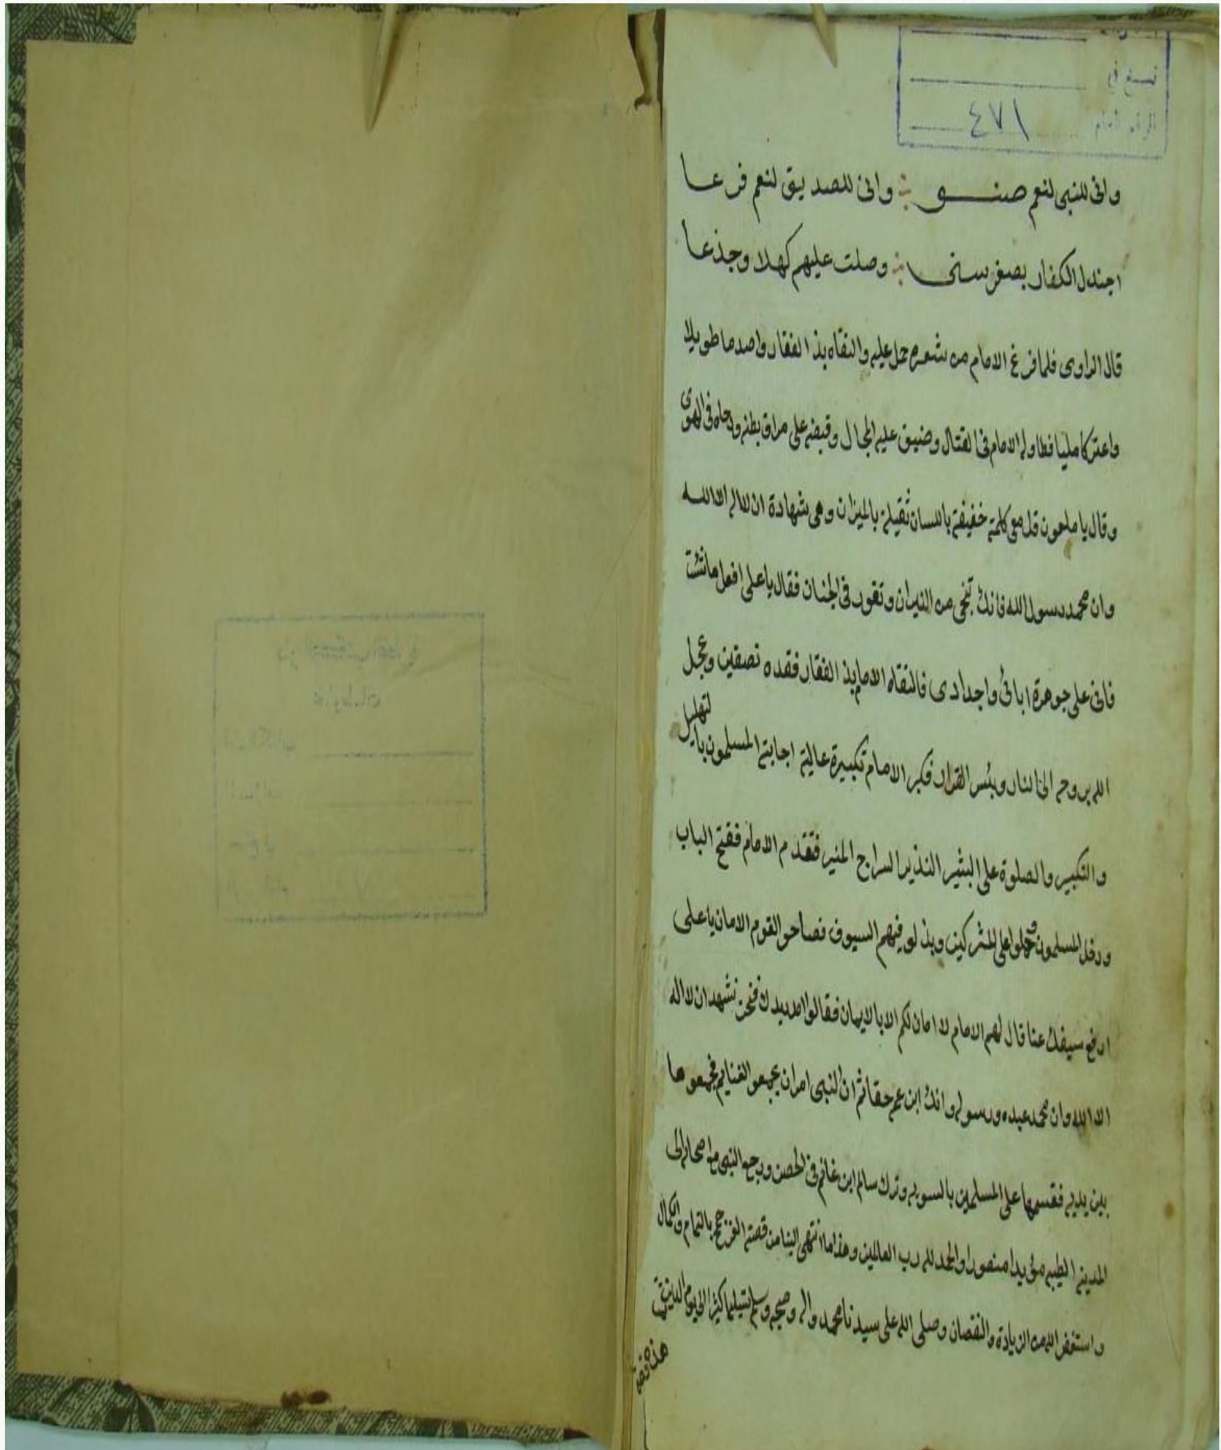 نسخ في
الرقم العام ٤٧١
واني للنبي لنعم صنو واني للصديق لنعم فرعا
اجندل الكفار بصغر سني وصلت عليهم كهلا وجذعا
قال الراوى فلما فرغ الامام من شعره حمل عليه والتقاه بذا الفقار واصدما طويلا
واعتركا مليا فطاوله الامام في القتال وضيق عليه المجال وقبضه على مراق بطنه ودحاه في الهوى
وقال يا ملعون قل معي كلمة خفيفة باللسان ثقيلة بالميزان وهي شهادة ان لا اله الا الله
وان محمد رسول الله فانك تنجى من النيران وتفوز في الجنان فقال يا على افعل ما شئت
فاني على جوهرة ابائي واجدادى فالتقاه الامام بذا الفقار فقده نصفين وعجل
الله بروحه الى النار وبئس القرار فكبر الامام تكبيرة عالية اجابته المسلمون بالتهليل
والتكبير والصلوة على البشير النذير السراج المنير فتقدم الامام ففتح الباب
ودخل المسلمون وحملوا على المشركين وبذلو فيهم السيوف فصاحو القوم الامان يا على
ارفع سيفك عنا قال لهم الامام لا امان لكم الا بالايمان فقالوا امدد يدك فنحن نشهد ان لا اله
الا الله وان محمد عبده ورسوله وانك ابن عمه حقا ثم ان النبي امر ان يجمعو الغنايم فجمعوها
بين يديه فقسمها على المسلمين بالسويه وترك سالم ابن غانم في الحصن ورجع النبي مع اصحابه الى
المدينه الطيبه مؤيدا منصورا والحمد لله رب العالمين وهذا ما انتهى الينا من قصة بالتمام والكمال
واستغفر الله من الزيادة والنقصان وصلى الله على سيدنا محمد واله وصحبه وسلم تسليما كثيرا الى يوم الدين
هذه